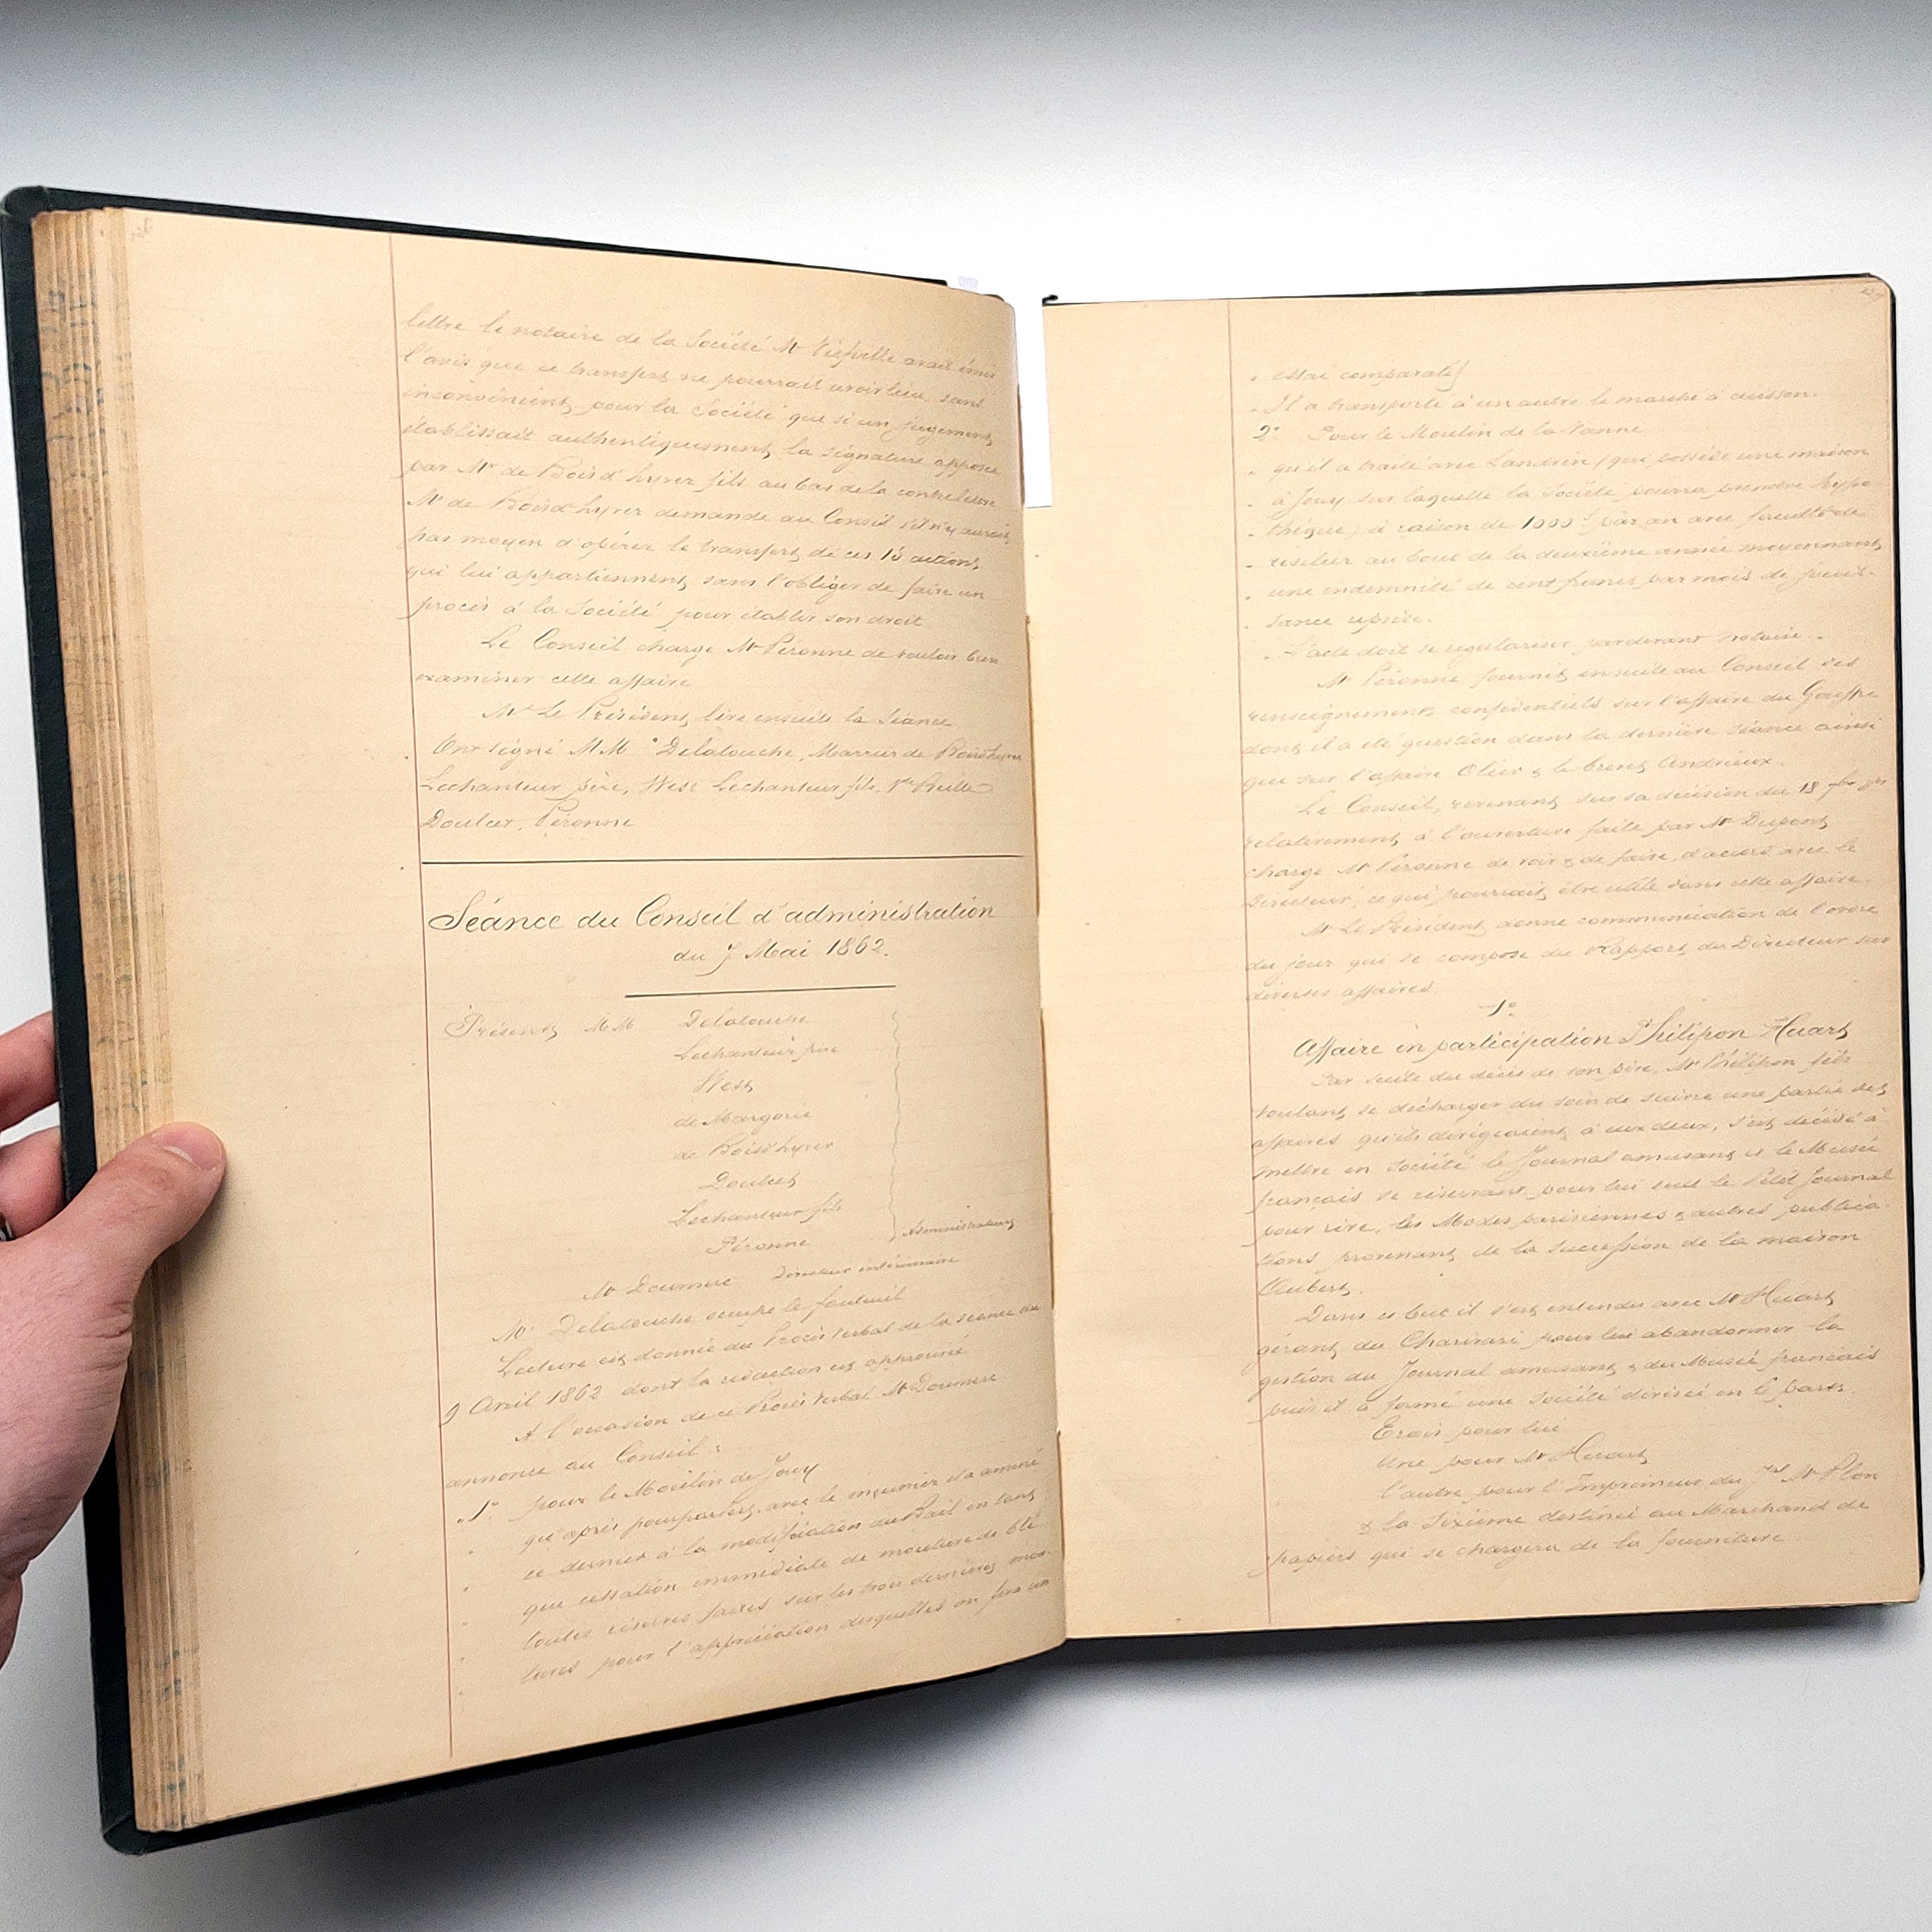 lettre le notaire de la Société Mr Viefville avait émis
l'avis que ce transfert ne pourrait avoir lieu, sans
inconvénient, pour la Société que si un jugement
établissait authentiquement la signature apposée
par Mr de Boisd'hyver fils au bas de la contrelettre
Mr de Boisd'hyver demande au Conseil s'il n'y aurait
pas moyen d'opérer le transfert de ces 15 actions,
qui lui appartiennent, sans l'obliger de faire un
procès à la Société pour établir son droit
Le Conseil charge Mr Péronne de vouloir bien
examiner cette affaire
Mr Le Président lève ensuite la Séance
Ont signé MM Delalouche, Marrier de Boisd'hyver
Lechanteur père, West Lechanteur fils, Vte Reille
Doulcet, Péronne
Séance du Conseil d'administration
du 7 Mai 1862.
Présents MM Delalouche
Lechanteur père
West
de Margorie
de Boisd'hyver
Doulcet
Lechanteur fils
Péronne Administrateurs
Mr Doumerc Directeur intérimaire
Mr Delalouche occupe le fauteuil
Lecture est donnée du Procès verbal de la séance du
9 Avril 1862 dont la rédaction est approuvée
A l'occasion de ce Procès verbal Mr Doumerc
annonce au Conseil :
1° pour le Moulin de Jouy
qu'après pourparlers, avec le meunier il a amené
ce dernier à la modification du Bail en tant
que cessation immédiate de mouture de blé
toutes réserves faites sur les trois dernières mou-
tures pour l'appréciation desquelles on fera un
essai comparatif
Il a transporté à un autre le marché à cuisson.
2° Pour le Moulin de la Vanne
qu'il a traité avec Landrin (qui possède une maison
à Jouy sur laquelle la Société pourra prendre hypo-
thèque) à raison de 1000 f par an avec faculté de
résilier au bout de la deuxième année moyennant
une indemnité de cent francs par mois de jouis-
sance
L'acte doit se régulariser pardevant notaire.
Mr Péronne fournit ensuite au Conseil des
renseignements confidentiels sur l'affaire du Gouffre
dont il a été question dans la dernière séance ainsi
que sur l'affaire Olier & le brevet Andrieux.
Le Conseil, revenant sur sa décision du 18
relativement, à l'ouverture faite par Mr Dupont
charge Mr Péronne de voir & de faire, d'accord avec le
Directeur, ce qui pourrait être utile dans cette affaire.
Mr Le Président donne communication de l'ordre
du jour qui se compose du Rapport du Directeur sur
diverses affaires.
1°
Affaire en participation Philipon Huart
Par suite du décès de son père, Mr Philipon fils
voulant se décharger du soin de suivre une partie des
affaires qu'ils dirigeaient à eux deux, s'est décidé à
mettre en Société le Journal amusant et le Musée
français se réservant pour lui seul le Petit Journal
pour rire, les Modes parisiennes & autres publica-
tions provenant de la succession de la maison
Aubert.
Dans ce but il s'est entendu avec Mr Huart
gérant du Charivari pour lui abandonner la
gestion du Journal amusant & du Musée français
puis il a formé une Société divisée en 6 parts.
Trois pour lui
Une pour Mr Huart
l'autre pour l'Imprimeur du Jal Mr Plon
& la Sixième destinée au Marchand de
papiers qui se chargera de la fourniture